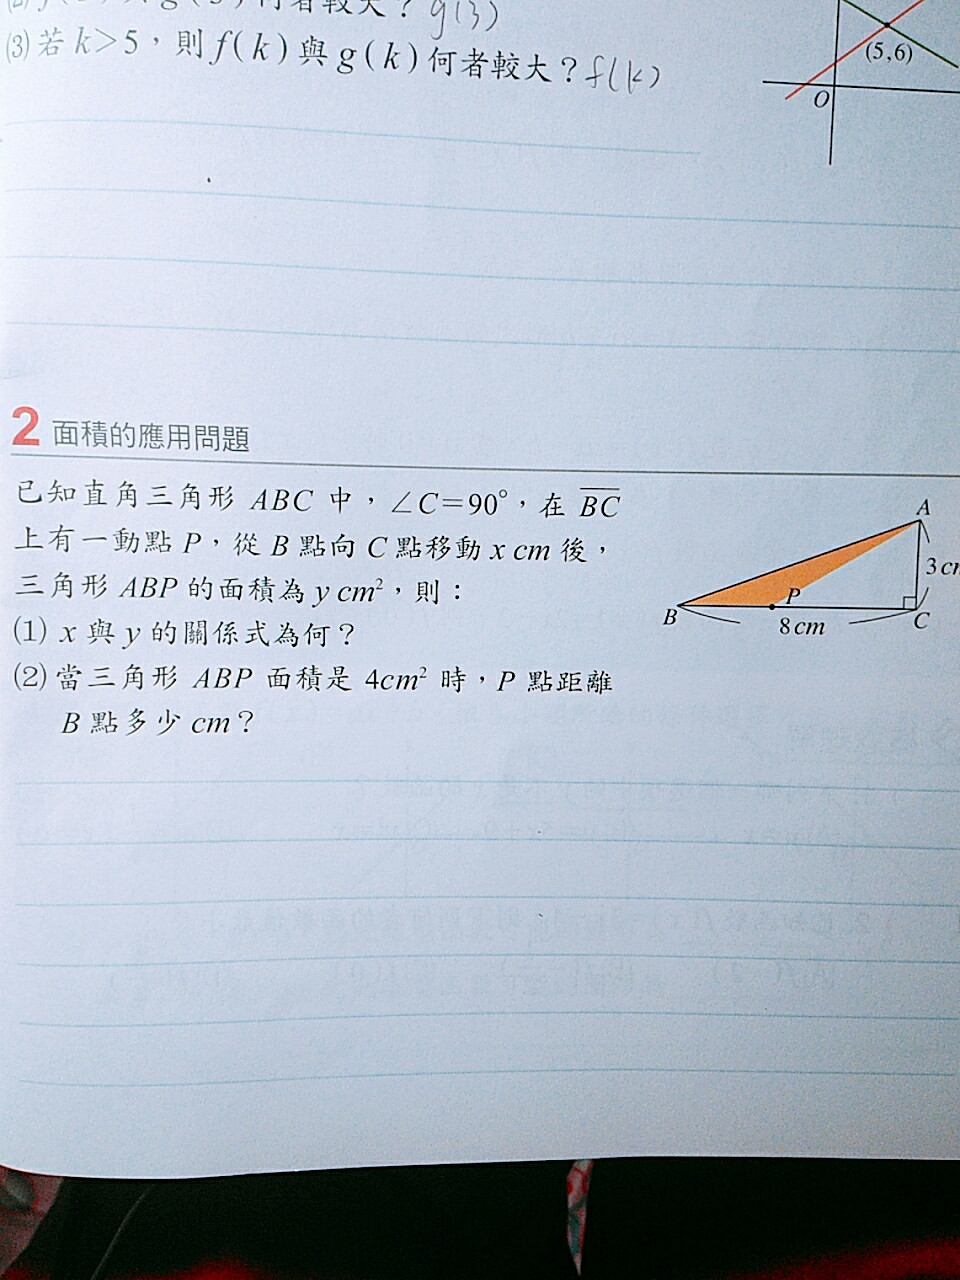 (3) 若 k>5,則 f(k) 與 g(k) 何者較大?f(k)
g(3)
(5,6)
O
2 面積的應用問題
已知直角三角形 ABC 中,∠C=90°,在 \overline{BC}
上有一動點 P,從 B 點向 C 點移動 x cm 後,
三角形 ABP 的面積為 y cm²,則:
(1) x 與 y 的關係式為何?
(2) 當三角形 ABP 面積是 4cm² 時,P 點距離
B 點多少 cm?
A
3 c
P
B
8 cm
C